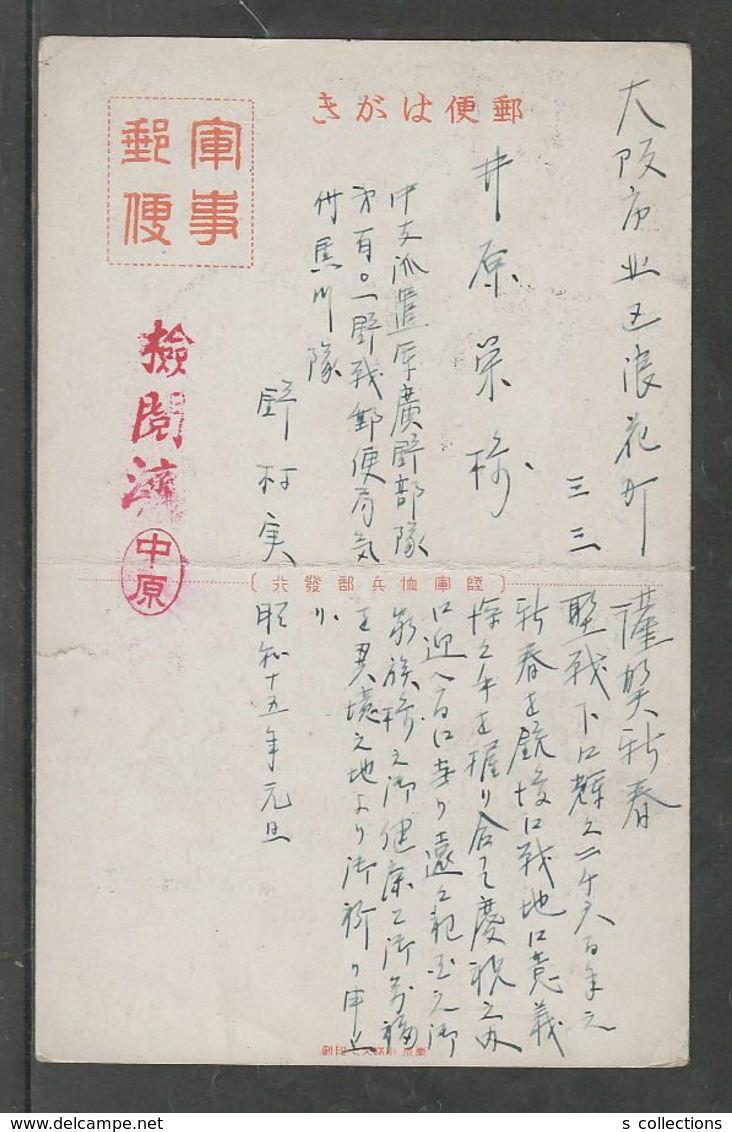 郵便はがき
軍事
郵便
大阪市此花区浪花町
三三
井原栄様
中支派遣軍廣野部隊
第百〇一野戦郵便局気
付馬川隊
野村実
検閲済
中原
〔陸軍恤兵部發行〕
謹賀新春
聖戦下に輝く二千六百年之
新春を銃後に戦地に意義
深く手を握り合って慶祝之内
に迎へ
遠く祖国之御
家族様之御健康と御多福
を異境之地より御祈り申上
昭和十五年元旦